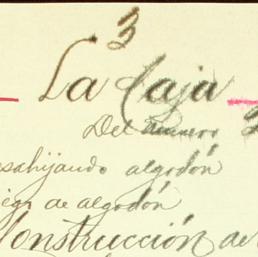 3
La Caja
Del numero 3
esahijando algodón
iega de algodón
Construcción de